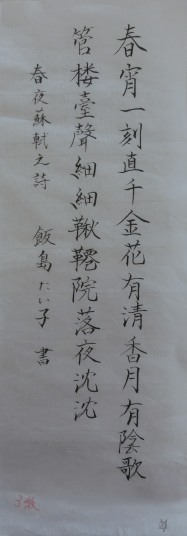 春宵一刻直千金花有清香月有陰歌
管楼臺聲細細鞦韆院落夜沈沈
春夜蘇軾之詩 飯島たい子 書